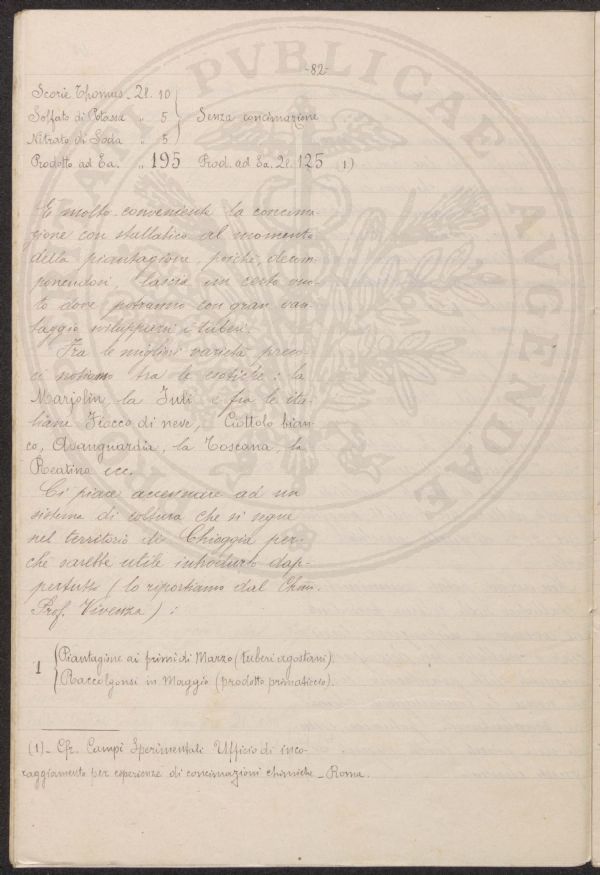 -82-
Scorie Thomas - Ql. 10
Solfato di Potassa " 5 Senza concimazione
Nitrato di Soda " 5
Prodotto ad Ea. " 195 Prod. ad Ea. Ql. 125 (1)
È molto conveniente la concima-
zione con stallatico al momento
della piantagione, poichè, decom-
ponendosi, lascia un certo vuo-
to dove potranno con gran van-
taggio svilupparsi i tuberi.
Fra le migliori varietà preco-
ci notiamo tra le esotiche: la
Marjolin, la Juli e fra le ita-
liane Fiocco di neve, Ciottolo bian-
co, Avanguardia, la Toscana, la
Reatina ecc.
Ci piace accennare ad un
sistema di coltura che si segue
nel territorio di Chioggia per-
chè sarebbe utile introdurlo dap-
pertutto (lo riportiamo dal Chm.
Prof. Vivenza):
1 { Piantagione ai primi di Marzo (tuberi agostani).
Raccolgonsi in Maggio (prodotto primaticcio).
(1) - Cfr. Campi Sperimentali Ufficio di inco-
raggiamento per esperienze di concimazioni chimiche - Roma.
PVBLICAE AVGENDAE